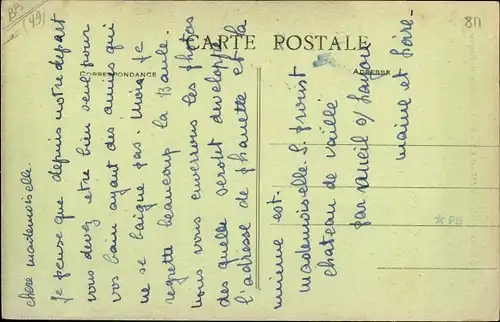 BB
(49)
811
CARTE POSTALE
CORRESPONDANCE
ADRESSE
chere mademoiselle.
Je pense que depuis notre depart
vous devez etre bien seule pour
vos bain ayant des amies qui
ne se baigne pas. Mois je
regrette beaucoup la Baule.
Nous vous enverrons les photos
des quelle seront developpe
l'adresse de phanette et la
mienne est.
Mademoiselle. S. Proust
chateau de vaillé
par Rueil s/ Layon
maine et Loire-
*PB